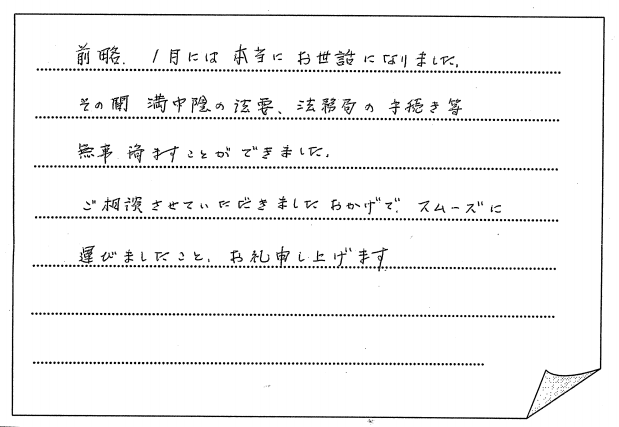 前略. 1月には本当にお世話になりました。
その間 満中陰の法要、法務局の手続き等
無事 済ますことができました。
ご相談させていただきましたおかげで、スムーズに
運びましたこと、お礼申し上げます